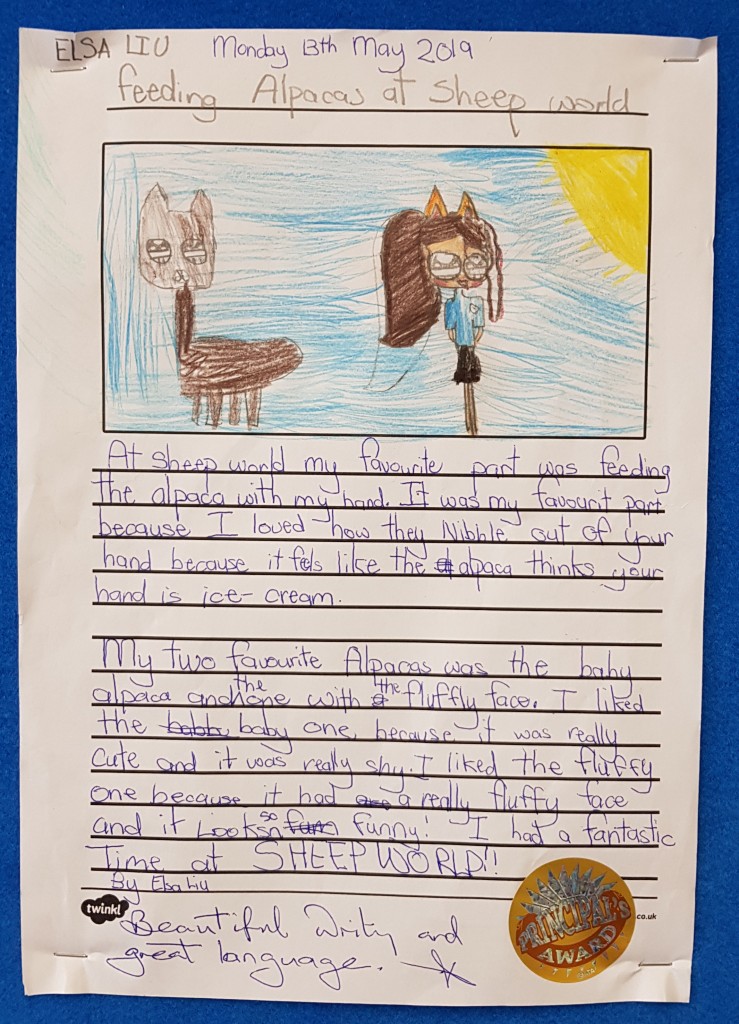 ELSA LIU Monday 13th May 2019
feeding Alpacas at sheep world
At sheep world my favourite part was feeding
the alpaca with my hand. It was my favourit part
because I loved how they Nibble out of your
hand because it feels like the alpaca thinks your
hand is ice-cream.
My two favourite Alpacas was the baby
alpaca and the one with the fluffly face. I liked
the babby baby one because it was really
cute and it was really shy. I liked the fluffy
one because it had a really fluffy face
and it Looks so funny! I had a fantastic
Time at SHEEP WORLD!!
By Elsa Liu
twinkl
.co.uk
Beautiful Writing and
great language.
PRINCIPAL'S
AWARD